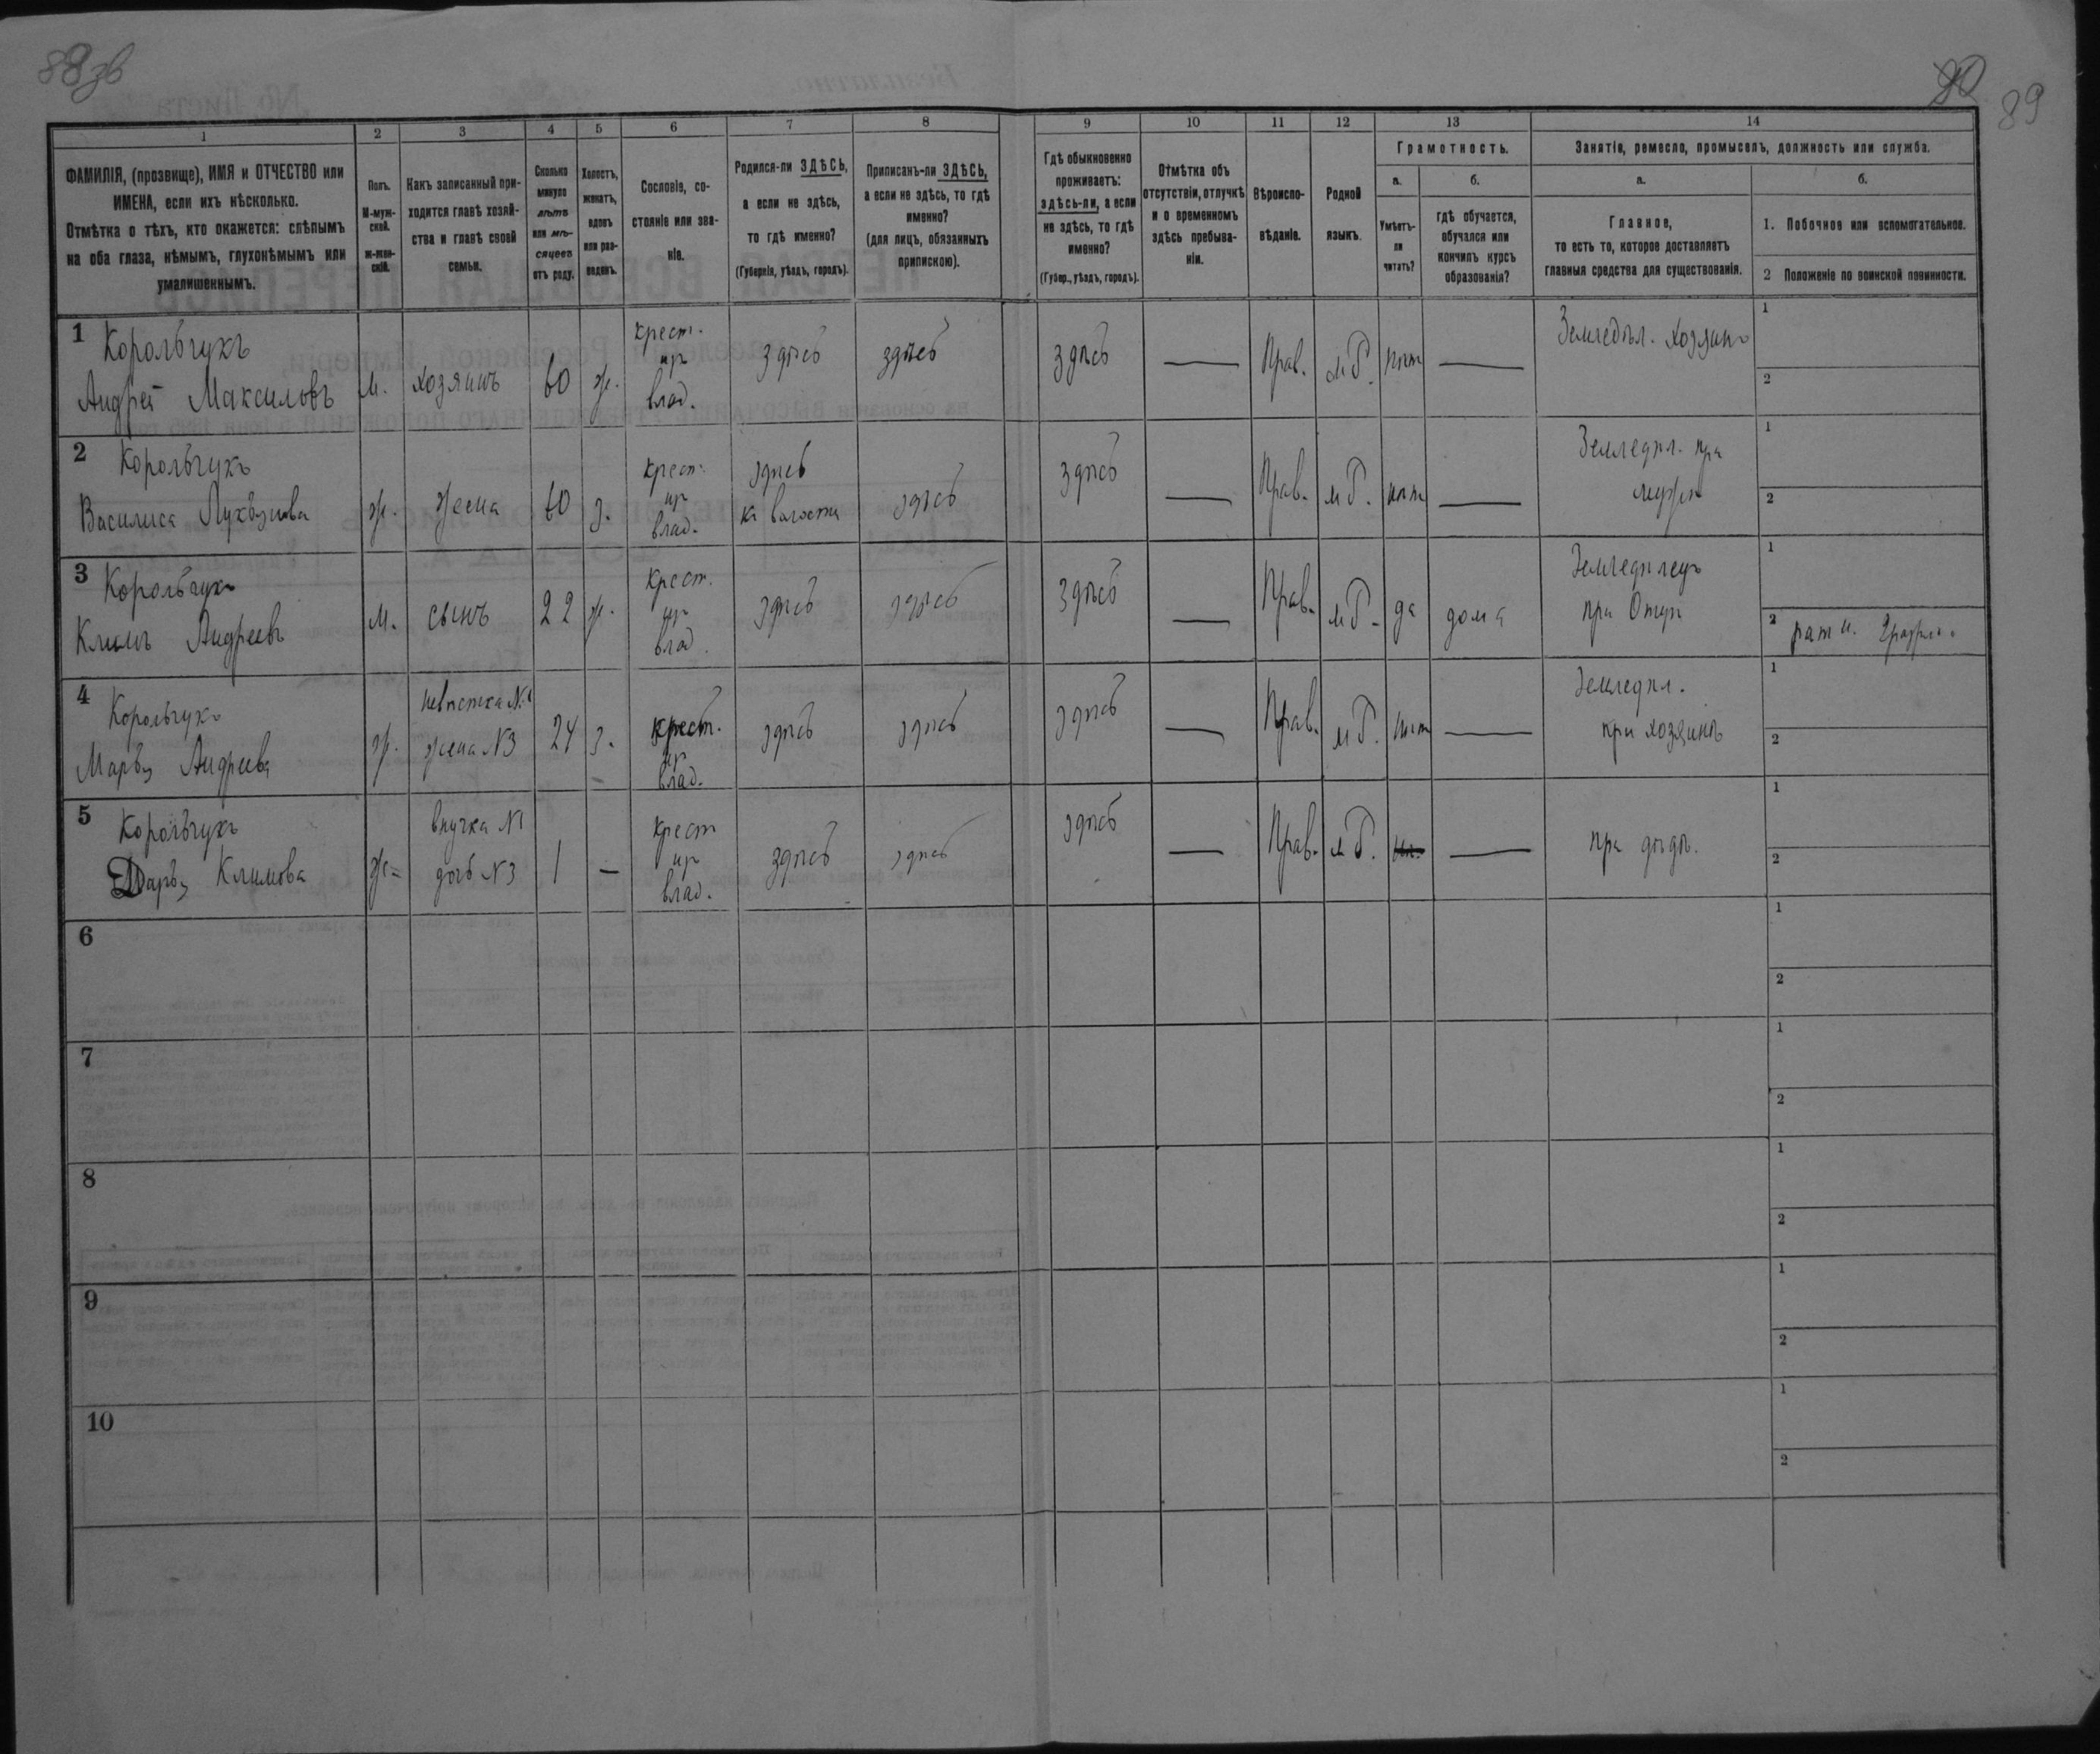 88 зв
90
89
1 2 3 4 5 6 7 8 9 10 11 12 13 14
ФАМИЛІЯ, (прозвище), ИМЯ и ОТЧЕСТВО или
ИМЕНА, если ихъ нѣсколько.
Отмѣтка о тѣхъ, кто окажется: слѣпымъ
на оба глаза, нѣмымъ, глухонѣмымъ или
умалишеннымъ.
Полъ.
М-муж-
ской.
ж-жен-
скій.
Какъ записанный при-
ходится главѣ хозяй-
ства и главѣ своей
семьи.
Сколько
минуло
лѣтъ
или мѣ-
сяцевъ
отъ роду.
Холостъ,
женатъ,
вдовъ
или раз-
веденъ.
Сословіе, со-
стояніе или зва-
ніе.
Родился-ли ЗДѢСЬ,
а если не здѣсь,
то гдѣ именно?
(Губернія, уѣздъ, городъ).
Приписанъ-ли ЗДѢСЬ,
а если не здѣсь, то гдѣ
именно?
(для лицъ, обязанныхъ
припискою).
Гдѣ обыкновенно
проживаетъ:
здѣсь-ли, а если
не здѣсь, то гдѣ
именно?
(Губер., уѣздъ, городъ).
Отмѣтка объ
отсутствіи, отлучкѣ
и о временномъ
здѣсь пребыва-
ніи.
Вѣроиспо-
вѣданіе.
Родной
языкъ.
Грамотность.
а.
Умѣетъ-
ли
читать?
б.
гдѣ обучается,
обучался или
кончилъ курсъ
образованія?
Занятіе, ремесло, промыселъ, должность или служба.
а.
Главное,
то есть то, которое доставляетъ
главныя средства для существованія.
б.
1. Побочное или вспомогательное.
2 Положеніе по воинской повинности.
1 Корольчукъ
Андрей Максимовъ
М. хозяинъ 60 ж.
крест.
изъ
влад.
здѣсь здѣсь здѣсь — Прав. мБ. нѣтъ —
Земледѣл. хозяинъ
1
2
2 Корольчукъ
Василиса
ж. жена 60 з.
крест.
изъ
влад.
здѣсь
волости
здѣсь здѣсь — Прав. мБ. нѣтъ —
Земледѣл. при
мужѣ
1
2
3 Корольчукъ
Климъ Андреевъ
М. сынъ 22 ж.
крест.
изъ
влад.
здѣсь здѣсь здѣсь — Прав. мБ. да дома
Земледѣлецъ
при Отцѣ
1
2 рат.
4 Корольчукъ
Марья Андреева
ж.
невѣстка №1
жена №3
24 з.
крест.
изъ
влад.
здѣсь здѣсь здѣсь — Прав. мБ. нѣтъ —
Земледѣл.
при хозяинѣ
1
2
5 Корольчукъ
Дарья Климова
ж.
внучка №1
дочь №3
1 —
крест
изъ
влад.
здѣсь здѣсь здѣсь — Прав. мБ. —
при дѣдѣ.
1
2
6
1
2
7
1
2
8
1
2
9
1
2
10
1
2